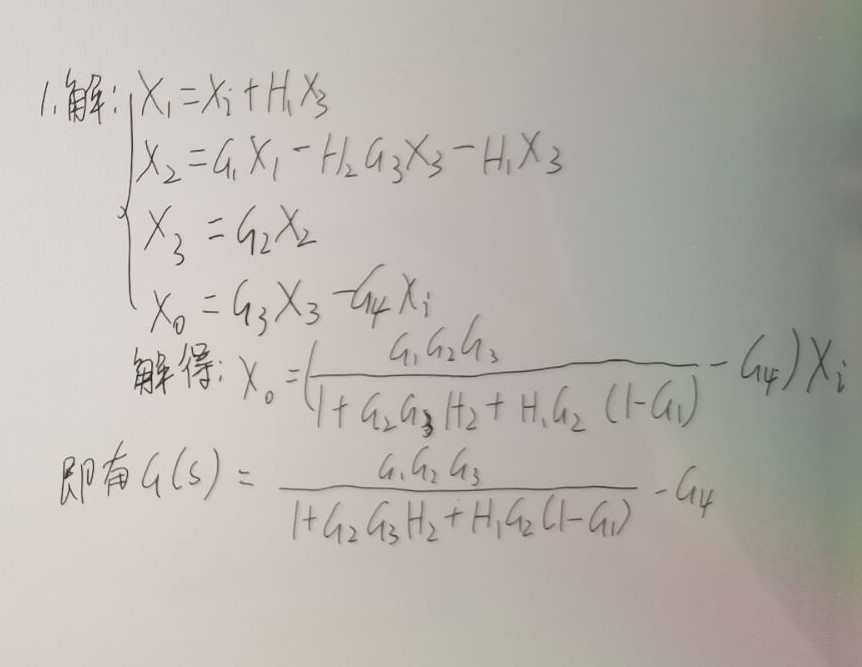 1.解: X₁=Xᵢ+H₁X₃
X₂=G₁X₁-H₂G₃X₃-H₁X₃
X₃=G₂X₂
X₀=G₃X₃-G₄Xᵢ
解得: X₀=(G₁G₂G₃/(1+G₂G₃H₂+H₁G₂(1-G₁))-G₄)Xᵢ
即有G(s)=G₁G₂G₃/(1+G₂G₃H₂+H₁G₂(1-G₁))-G₄